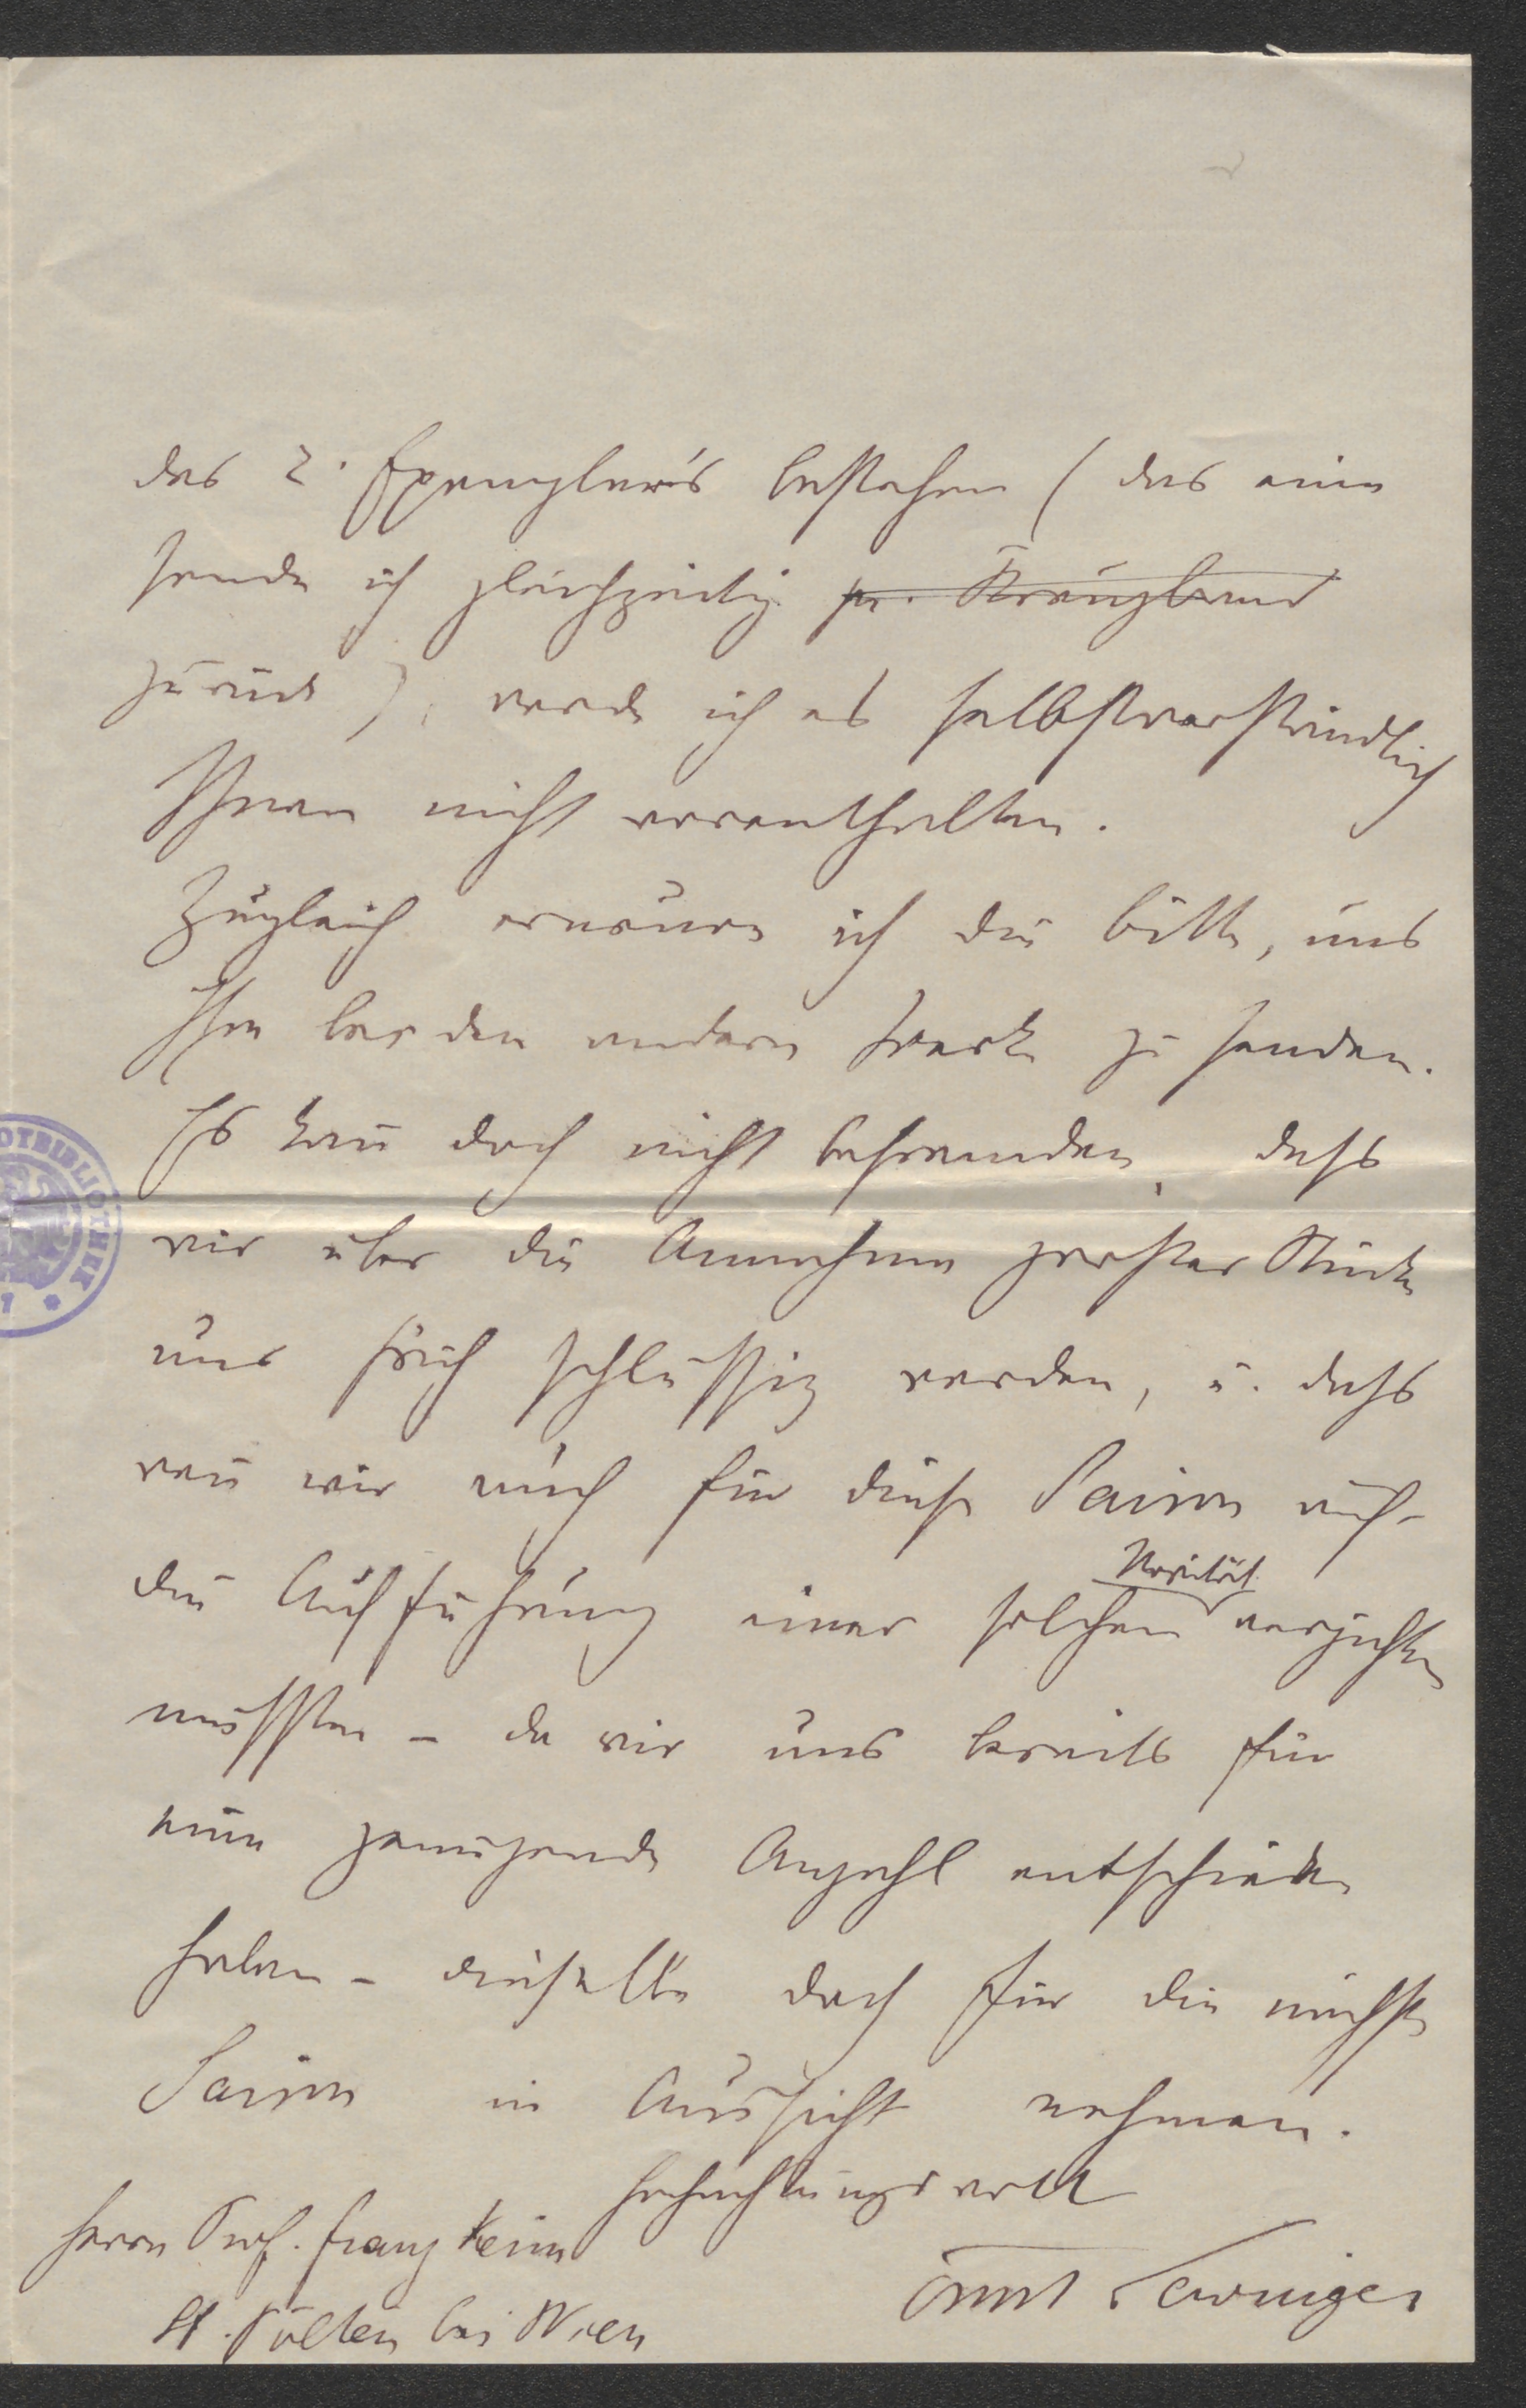 des 2. Exemplar's bestehen (das eine
sende ich gleichzeitig pr. Kreuzband
zurück), werde ich es selbstverständlich
Ihnen nicht vorenthalten.
Zugleich erneure ich die Bitte, uns
Ihre beiden andern Werke zu senden.
Es kañ doch nicht befremden, dass
wir über die Annahme großer Stücke
uns früh schlüssig werden, u. dass
weñ wir auch für diese Saison auf
die Aufführung einer solchen Novität verzichten
mussten - da wir uns bereits für
eine genügende Anzahl entschieden
haben - dieselbe doch für die nächste
Saison in Aussicht nehmen.
Hochachtungsvoll
Herrn Prof. Franz Keim
St. Pölten bei Wien
OTBIBLIOTHEK